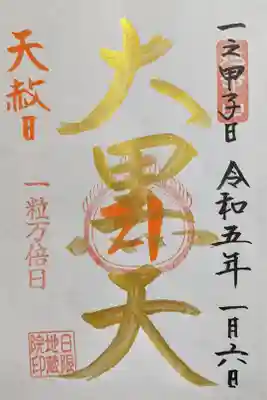 一之甲子日 令和五年 一月六日
大黒天
天赦日
一粒万倍日
日限
地蔵
院印